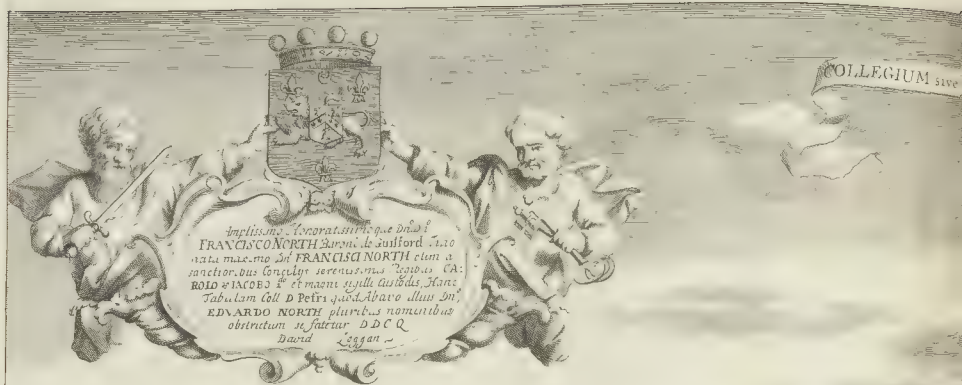 Amplissimo Honoratissimoque Dn° D°
FRANCISCO NORTH Baroni de Guilford Filio
natu maximo Dni FRANCISCI NORTH olim a
sanctioribus Concilijs serenissimis Regibus CA:
ROLO & IACOBO et magni sigilli Custodis, Hanc
Tabulam Coll D Petri quod Abavo illius Dn°
EDVARDO NORTH pluribus nominibus
obstrictum se fatetur D D C Q
David Loggan
COLLEGIUM sive